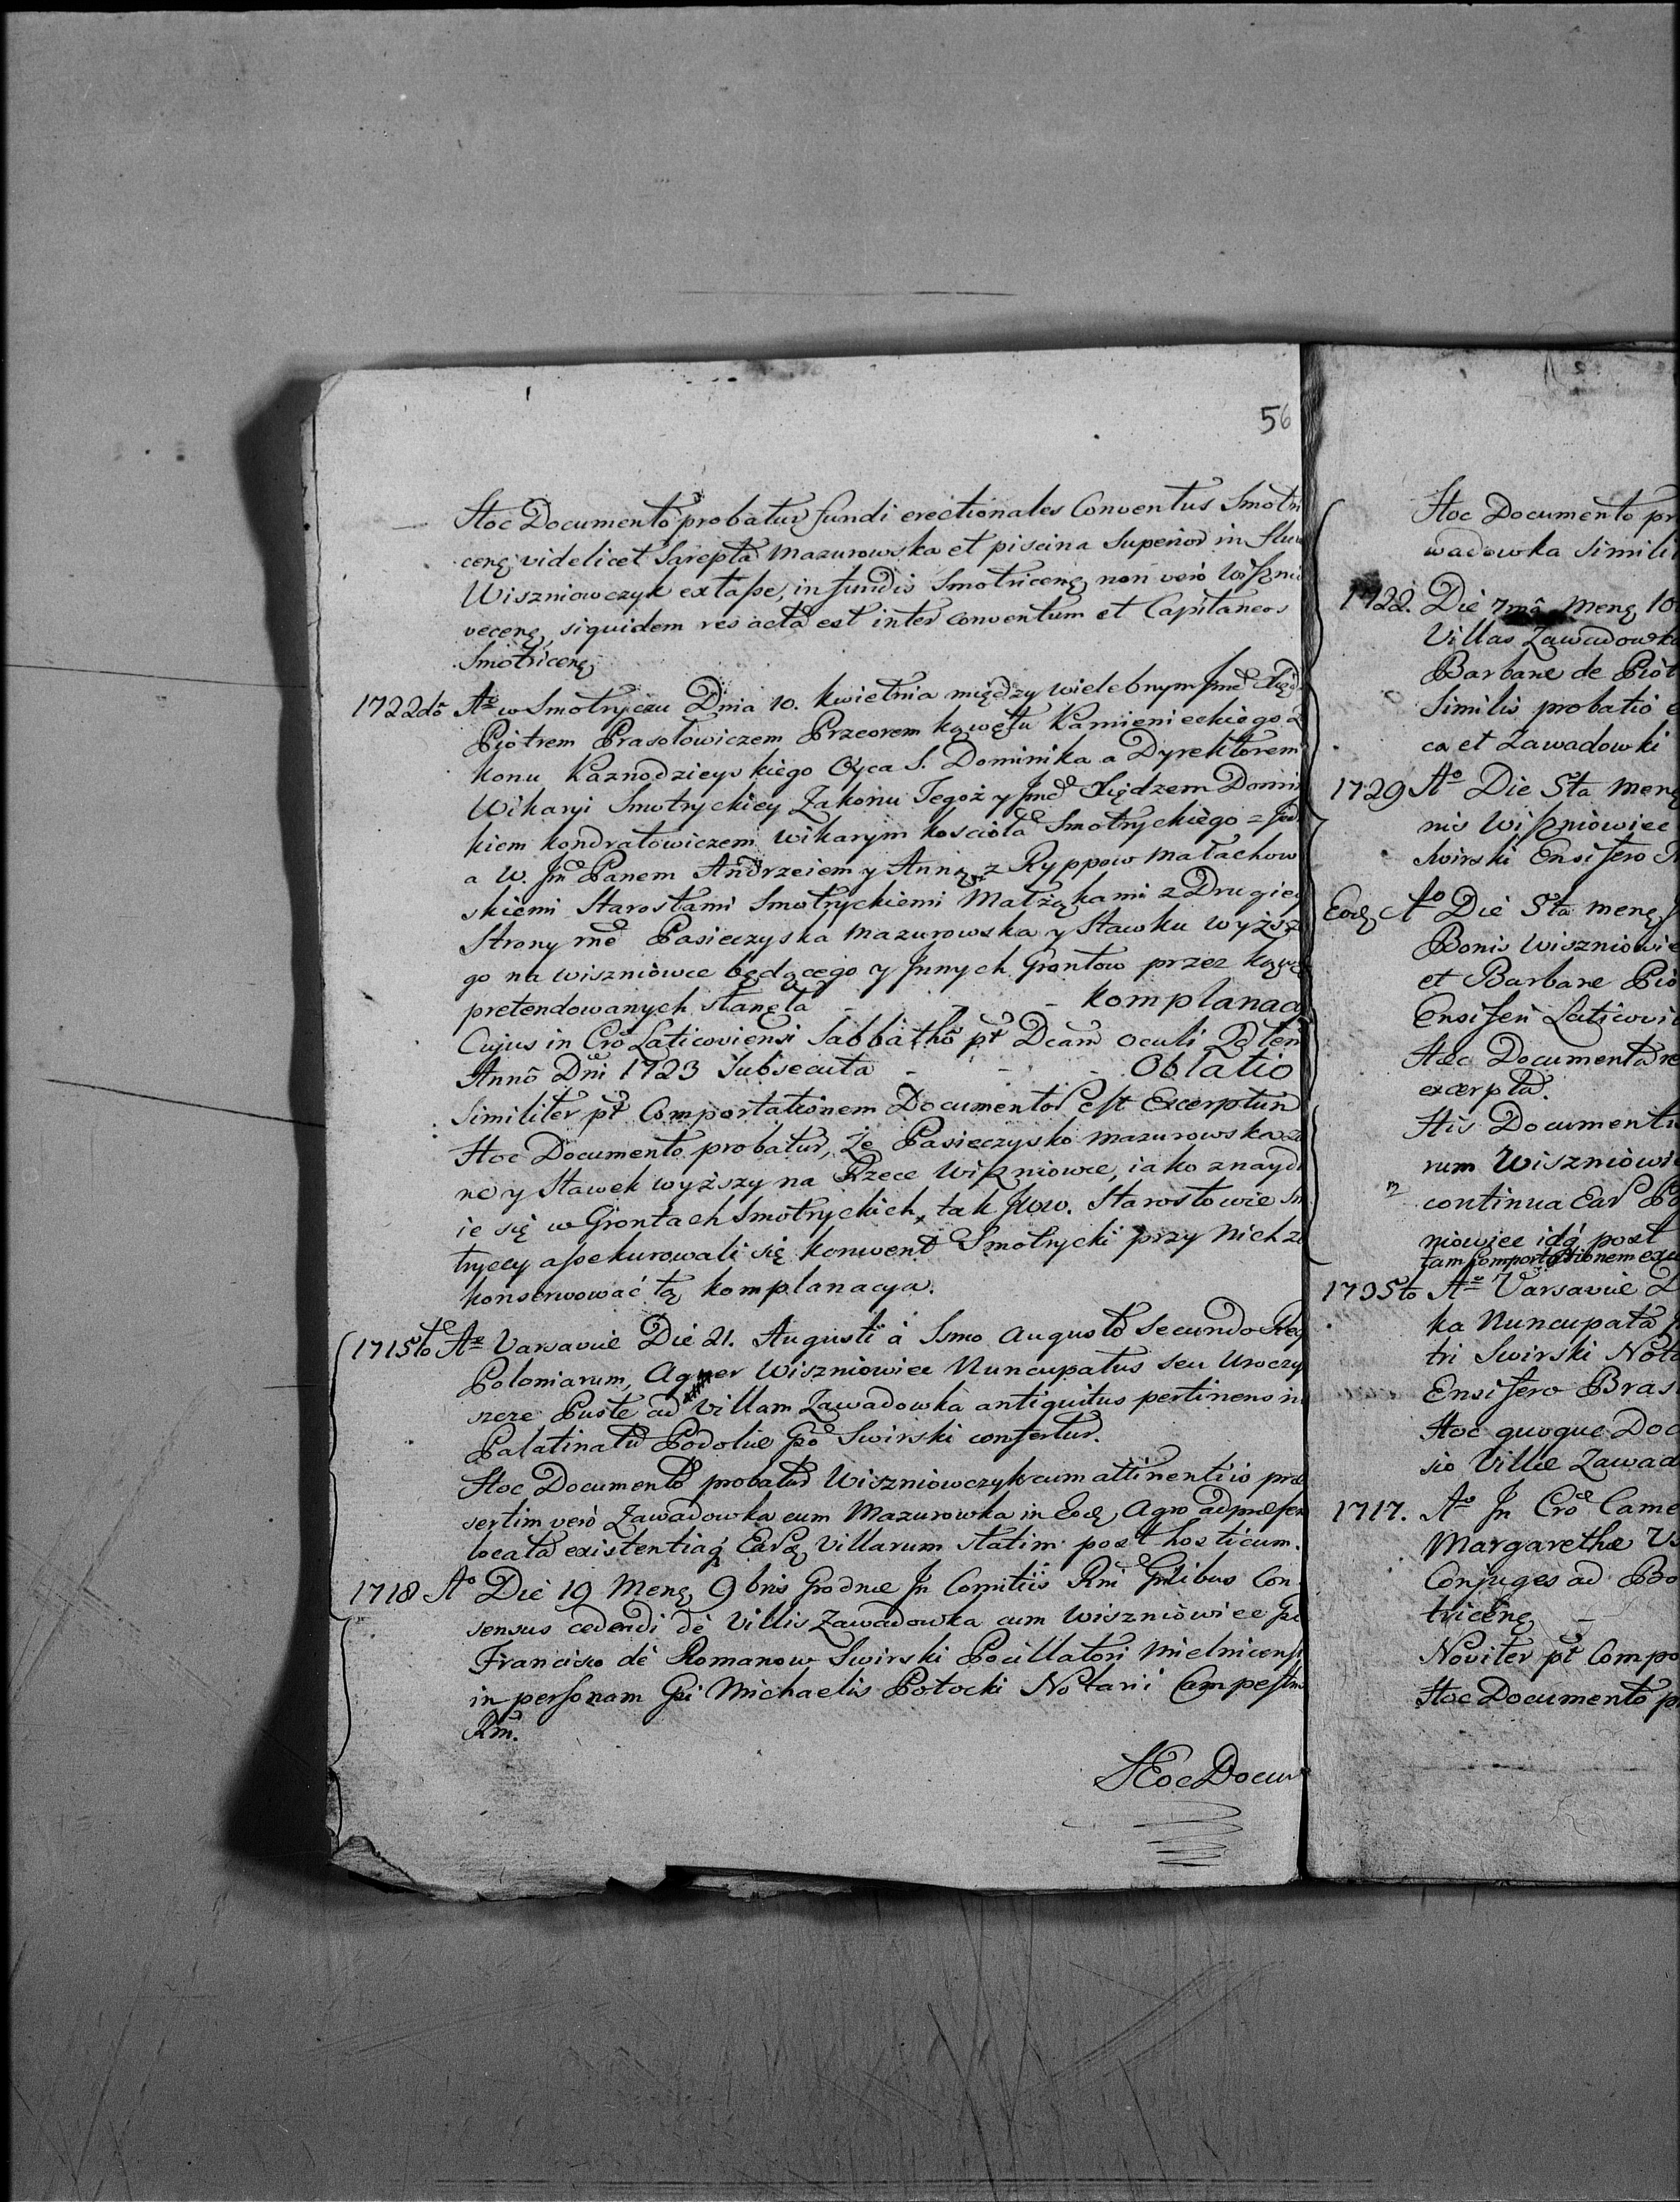 56
Hoc Documento probatur fundi erectionales Conventus Smotri
ceng videlicet Sarepta Mazurowska et piscina Superior in fluv
Wiszniowczyk extasse, in fundis Smotriceng non vero Wisznio
veceng, siquidem res acta est inter conventum et Capitaneos
Smotriceng
1722do Ao w Smotryczu Dnia 10. kwietnia między wielebnym Jmć Xięd
Piotrem Prasołowiczem Przeorem kąwętu Kamienieckiego Za
konu Kaznodzieyskiego Oyca S. Dominika a Dyrektorem
Wikaryi Smotryckiey Zakonu Tegoż y Jmć Xiędzem Domini
kiem kondratowiczem Wikarym kościoła Smotryckiego z Jed
a W. Jm Panem Andrzeiem y Anną z Ryppow Małachow
skiemi Starostami Smotryckiemi Małżąkami z Drugiey
Strony rne Pasieczyska Mazurowska y Stawku wyższe
go na wiszniowce będącego y Jnnych Grontow przez kąwę
pretendowanych stanęła - - - komplanac
Cujus in Cro Laticoviensi Sabbatho pt Dcam Oculi Qdlem
Anno Dni 1723 subsecuta - - - Oblatio
Similiter pt Comportationem Documentor est Excerptum
Hoc Documento probatur, że Pasieczysko mazurowska z
ne y Stawek wyższy na Rzece Wiszniowce, iako znaydu
ie się w Grontach Smotryckich, tak Jww. Starostowie Smo
tryccy assekurowali się konwent Smotrycki przy nich za
konserwować tą komplanacya.
1715to Ao Varsaviæ Die 21. Augusti à Ssmo Augusto Secundo Reg
Poloniarum, Ager Wiszniowiec Nuncupatus seu Uroczy
szcze Puste ad Villam Zawadowka antiquitus pertinens in
Palatinatu Podoliæ Gso Swirski confertur.
Hoc Documento probatur Wiszniowczyk cum attinentiis præ
sertim vero Zawadowka cum Mazurowka in Eod Agro ad præsen
locata existentiaq Eard Villarum statim post hosticum.
1718 Ao Die 19 Meng 9bris Grodnæ Jn Comitiis Rni Gnlibus Con
sensus cedendi de Villis Zawadowka cum Wiszniowiec Gso
Francisco de Romanow Swirski Pocillatori Mielnicensi
in personam Gsi Michaelis Potocki Notarii Campestris
Rni.
Hoc Docum
Hoc Documento pr
wadowka Simili
1722. Die 7ma Meng 10
Villas Zawadowka
Barbaræ de Piot
Similis probatio e
ca et Zawadowki
1729 Ao Die 5ta Meng
nis Wiszniowiec
Swirski Ensifero
Eod Ao Die 5ta meng
Bonis Wiszniowie
et Barbaræ Pio
Ensiferi Laticovi
Hæc Documenta re
excerpta.
His Documenti
rum Wiszniowi
continua Ear Po
niowiec idq post
tam Comportationem exce
1735to Ao Varsaviæ
ka Nuncupata
tri Swirski Nota
Ensifero Bras
Hoc quoque Doc
sio Villæ Zawad
1717. Ao Jn Cro Came
Margarethæ
Conjuges ad Bo
triceng -
Noviter pt Compo
Hoc Documento p